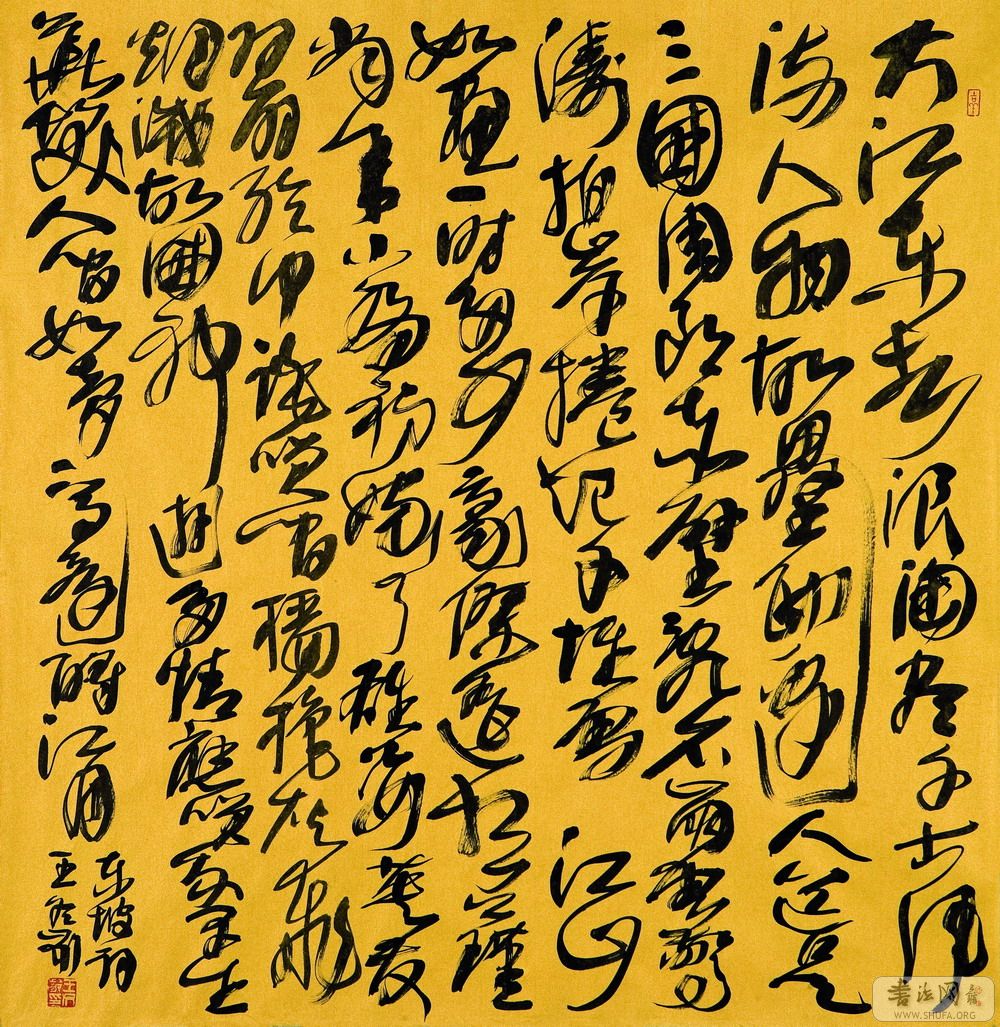 大江东去浪淘尽千古风
流人物故垒西边人道是
三國周郎赤壁乱石崩雲驚
濤拍岸捲起千堆雪江山
如画一时多少豪傑遥想公瑾
当年小乔初嫁了雄姿英发
羽扇纶巾谈笑间檣櫓灰飛
烟滅故國神遊多情應笑我早生
華髮人间如夢一尊還酹江月
东坡词
書法网
WWW.SHUFA.ORG